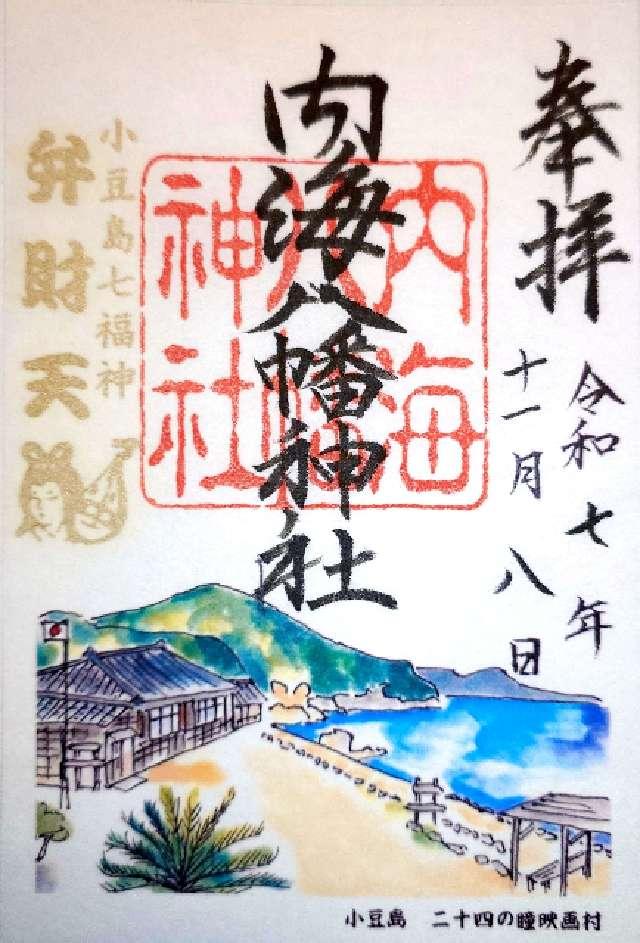 奉拝
令和七年
十一月八日
内海八幡神社
内海
八幡
神社
小豆島七福神
弁財天
小豆島 二十四の瞳映画村